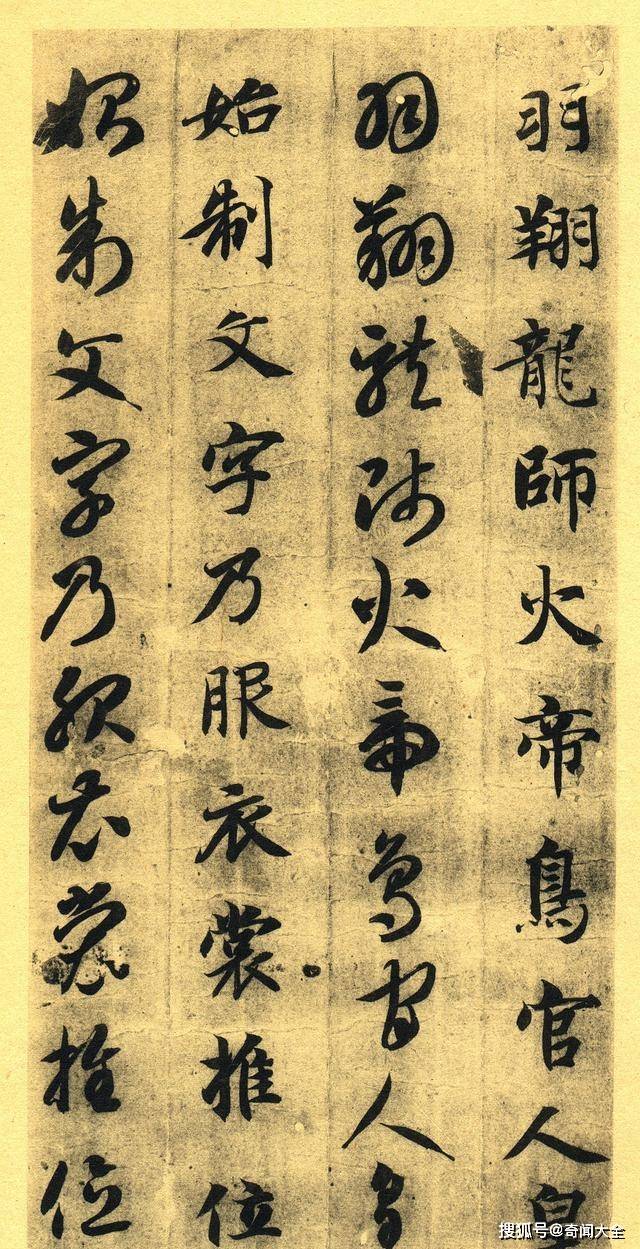 羽翔龍師火帝鳥官人皇
羽翔龍師火帝鳥官人皇
始制文字乃服衣裳推位
始制文字乃服衣裳推位
搜狐号@奇闻大全